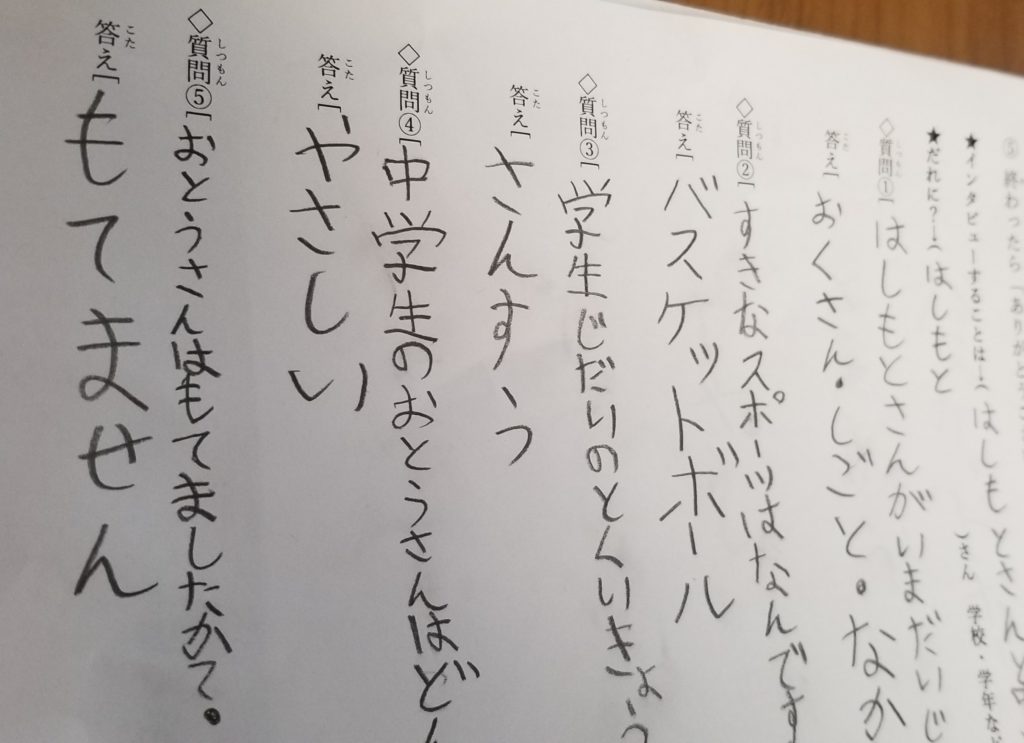 終わったら「ありがとう
★インタビューすることは…(はしもとさん
★だれに?…(はしもと )さん 学校・学年など
◇質問①[はしもとさんがいまだいじ
答え[おくさん。しごと。なか
◇質問②[すきなスポーツはなんです
答え[バスケットボール
◇質問③[学生じだいのとくいきょう
答え[さんすう
◇質問④[中学生のおとうさんはど
答え[やさしい
◇質問⑤[おとうさんはもてましたかて。
答え[もてません